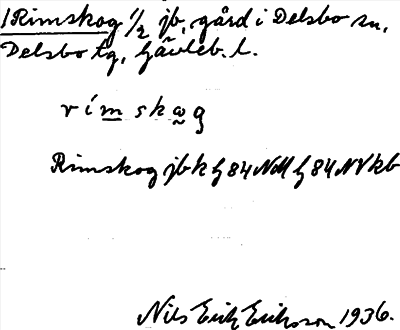 1 Rimskog 1/2 jb, gård i Delsbo sn,
Delsbo tg, Gävleb. l.
rímskag
Rimskog jbk G 84 NM G 84 NV kb
Nils Erik Eriksson 1936.